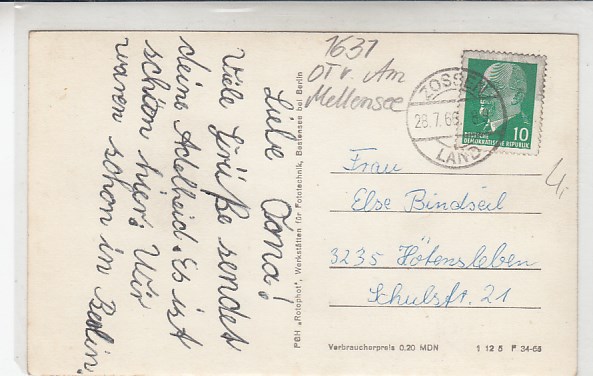 Liebe Oma!
Viele Grüße sendet
deine Adelheid. Es ist
schön hier. Wir
waren schon in Berlin.
PGH „Rotophot", Werkstätten für Fototechnik, Bestensee bei Berlin
1631
OT v. Am
Mellensee
ZOSSEN
LAND
10
DEUTSCHE
DEMOKRATISCHE REPUBLIK
Frau
Else Bindseil
3235 Hötensleben
Schulstr. 21
Verbraucherpreis 0,20 MDN
1 12 5 P 34-68